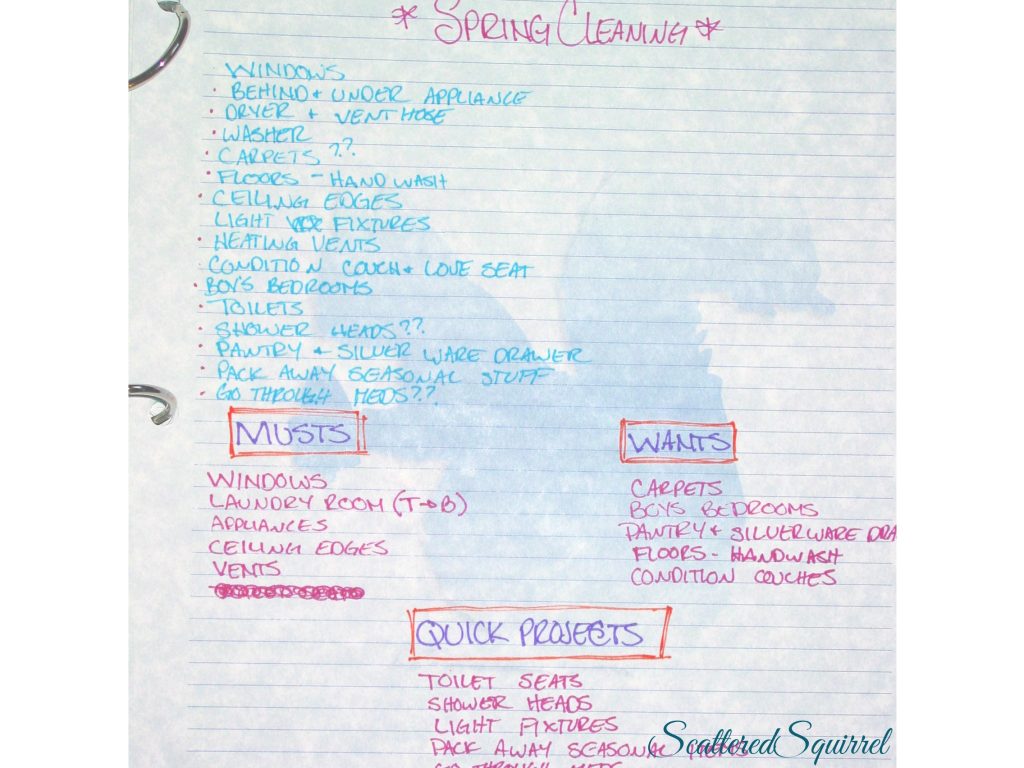 * SPRING CLEANING *
WINDOWS
• BEHIND + UNDER APPLIANCE
• DRYER + VENT HOSE
• WASHER
• CARPETS ??
• FLOORS - HANDWASH
• CEILING EDGES
LIGHT FIXTURES
• HEATING VENTS
CONDITION COUCH + LOVE SEAT
• BOY'S BEDROOMS
• TOILETS
• SHOWER HEADS??
• PANTRY + SILVER WARE DRAWER
• PACK AWAY SEASONAL STUFF
• GO THROUGH MEDS??
MUSTS
WINDOWS
LAUNDRY ROOM (T→B)
APPLIANCES
CEILING EDGES
VENTS
WANTS
CARPETS
BOYS BEDROOMS
PANTRY + SILVERWARE DRA
FLOORS - HANDWASH
CONDITION COUCHES
QUICK PROJECTS
TOILET SEATS
SHOWER HEADS
LIGHT FIXTURES
PACK AWAY SEASONAL
GO THROUGH MEDS
ScatteredSquirrel